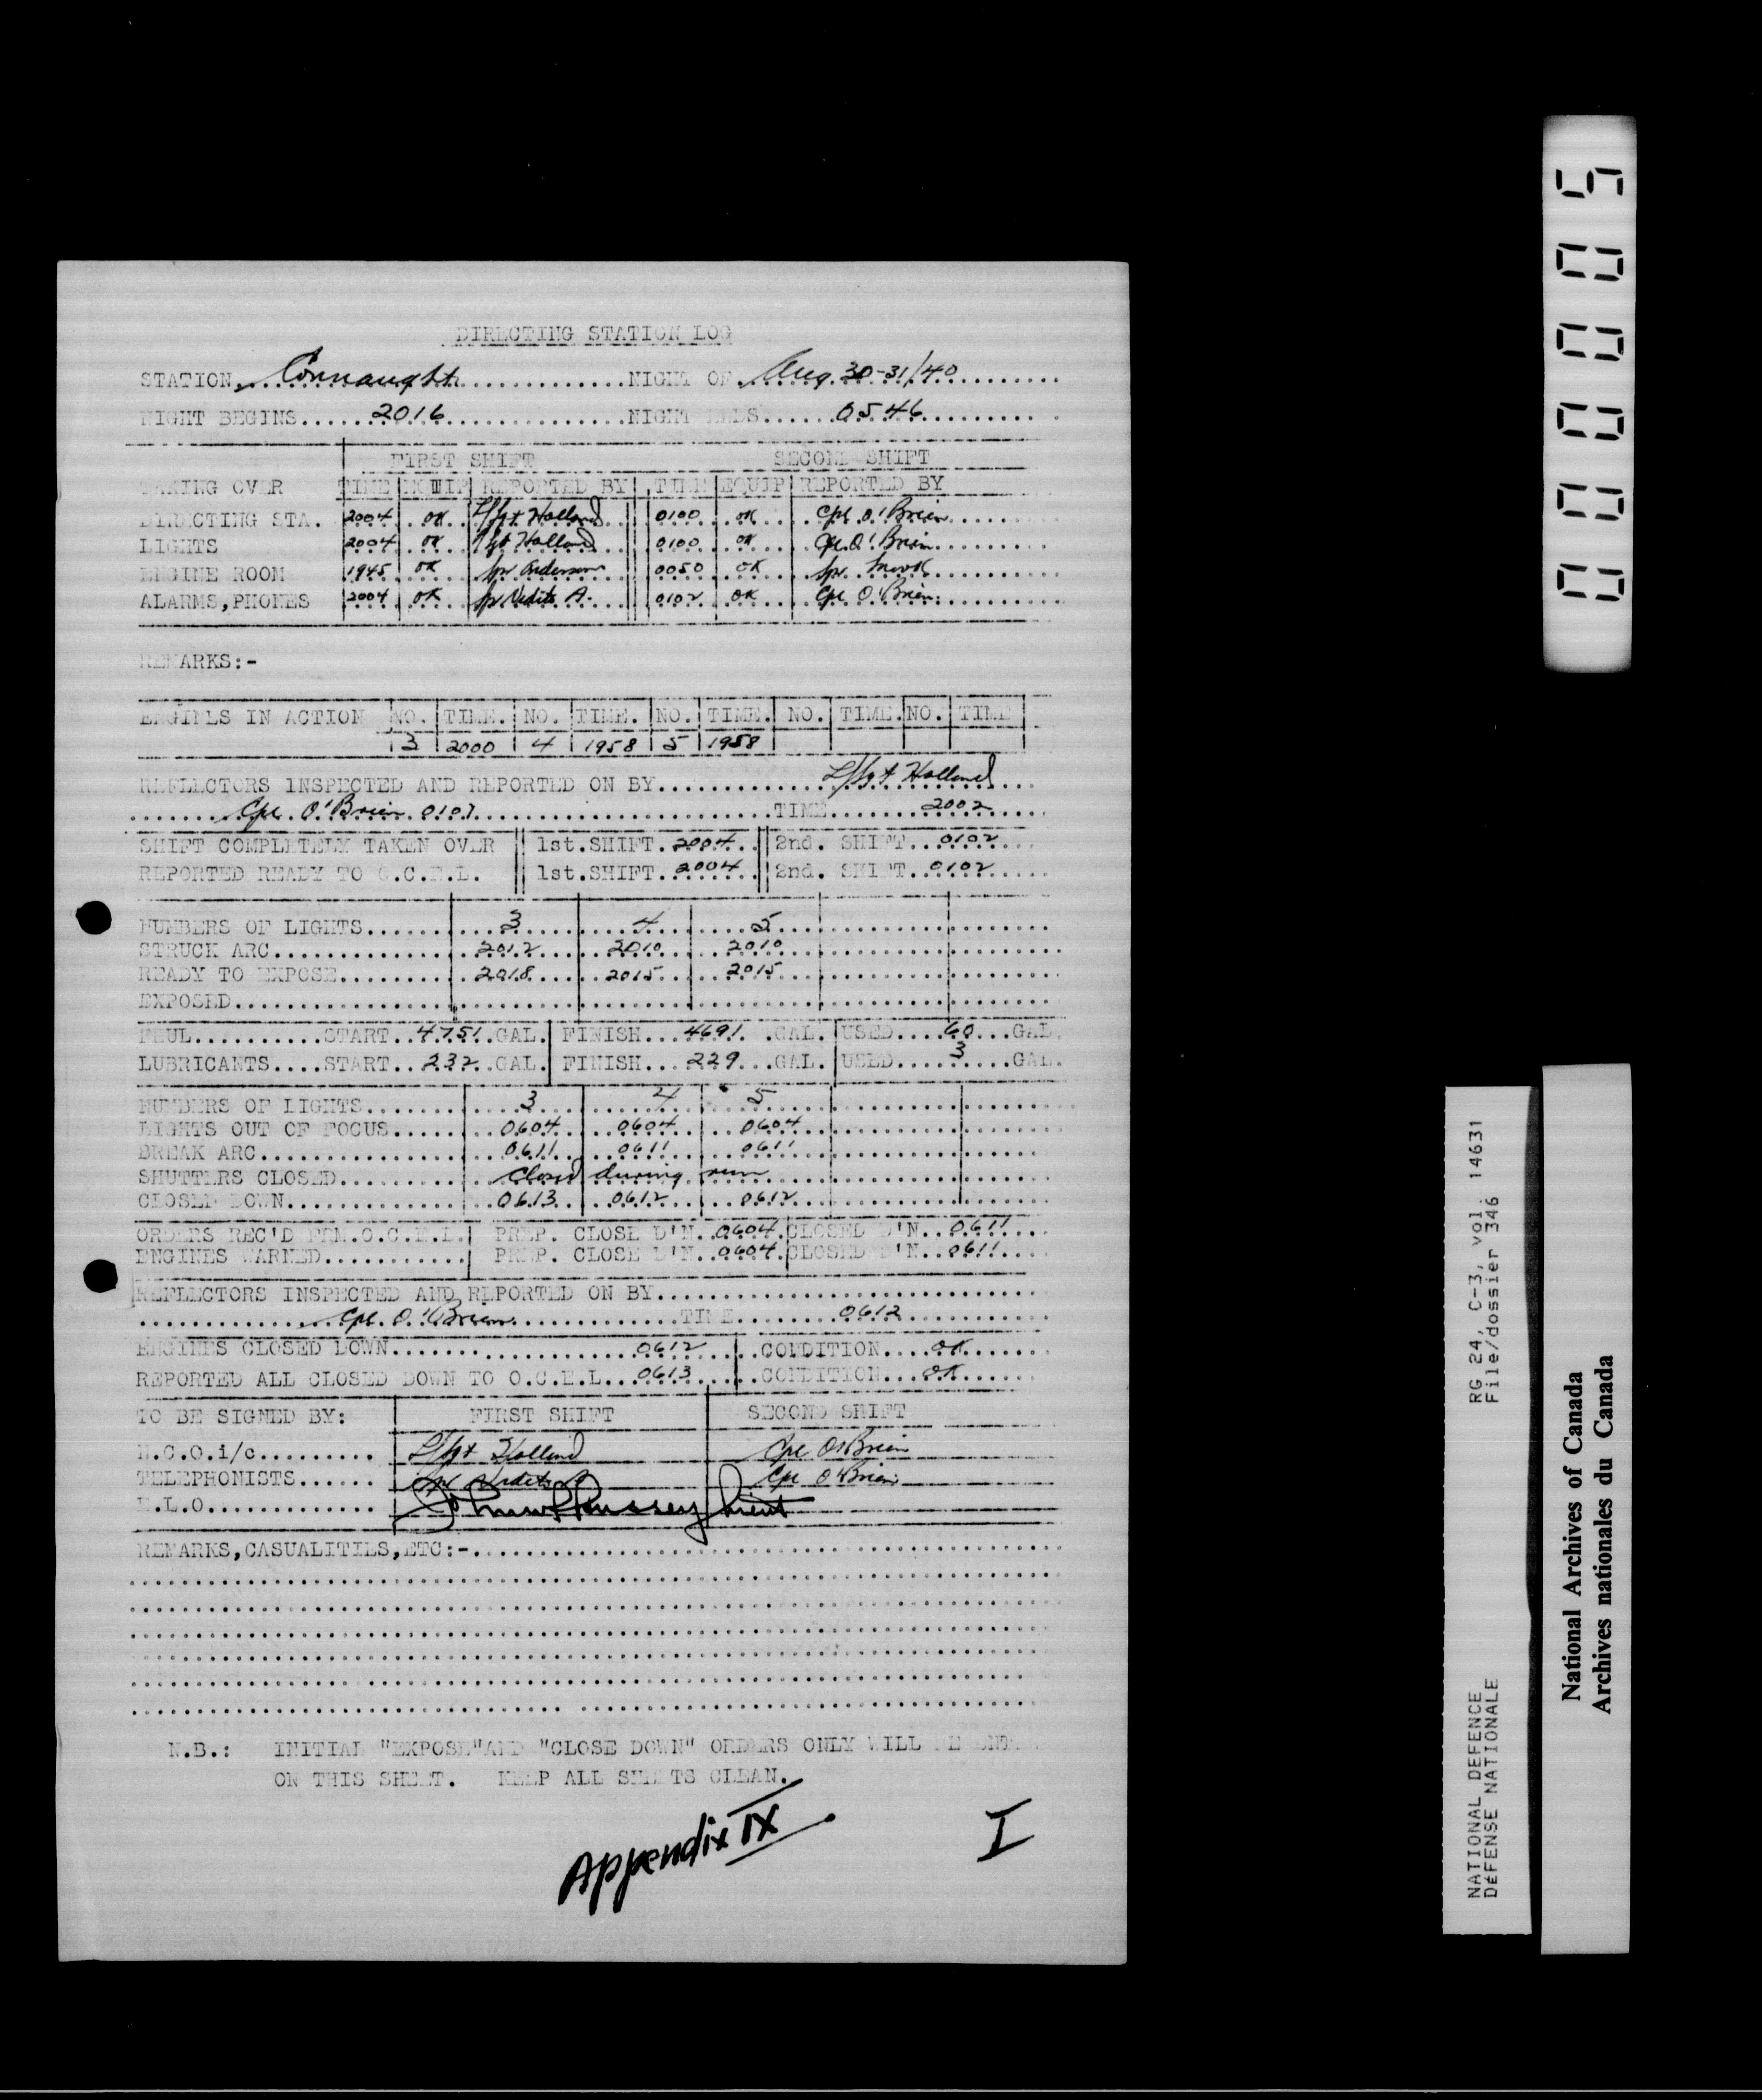 DIRECTING STATION LOG
STATION Connaught NIGHT OF Aug. 30-31/40
NIGHT BEGINS 2016 NIGHT ENDS 0546
FIRST SHIFT SECOND SHIFT
TAKING OVER TIME EQUIP REPORTED BY TIME EQUIP REPORTED BY
DIRECTING STA. 2004 OK L/Sgt Holland 0100 OK Cpl. O'Brien
LIGHTS 2004 OK L/Sgt Holland 0100 OK Cpl. O'Brien
ENGINE ROOM 1945 OK Spr Anderson 0050 OK Spr.
ALARMS,PHONES 2004 OK Spr A. 0102 OK Cpl O'Brien.
REMARKS:-
ENGINES IN ACTION NO. TIME. NO. TIME. NO. TIME. NO. TIME. NO. TIME
3 2000 4 1958 5 1958
REFLECTORS INSPECTED AND REPORTED ON BY L/Sgt Holland
Cpl. O'Brien 0107 TIME 2002
SHIFT COMPLETELY TAKEN OVER 1st.SHIFT. 2004 2nd. SHIFT 0102
REPORTED READY TO O.C.E.L. 1st.SHIFT. 2004 2nd. SHIFT 0102
NUMBERS OF LIGHTS 3 4 5
STRUCK ARC 2012 2010 2010
READY TO EXPOSE 2018 2015 2015
EXPOSED
FEUL START 4751 GAL. FINISH 4691 GAL. USED 60 GAL.
LUBRICANTS START 232 GAL. FINISH 229 GAL. USED 3 GAL.
NUMBERS OF LIGHTS 3 4 5
LIGHTS OUT OF FOCUS 0604 0604 0604
BREAK ARC 0611 0611 0611
SHUTTERS CLOSED Closed during run
CLOSED DOWN 0613 0612 0612
ORDERS REC'D FRM.O.C.E.L. PREP. CLOSE D'N 0604 CLOSED D'N 0611
ENGINES WARNED PREP. CLOSE D'N 0604 CLOSED D'N 0611
REFLECTORS INSPECTED AND REPORTED ON BY
Cpl. O'Brien TIME 0612
ENGINES CLOSED DOWN 0612 CONDITION OK
REPORTED ALL CLOSED DOWN TO O.C.E.L. 0613 CONDITION OK
TO BE SIGNED BY: FIRST SHIFT SECOND SHIFT
N.C.O.i/c L/Sgt Holland Cpl O'Brien
TELEPHONISTS Spr Cpl O'Brien
E.L.O. Lieut
REMARKS,CASUALITILS,ETC:-
N.B.: INITIAL "EXPOSE"AND "CLOSE DOWN" ORDERS ONLY WILL BE
ON THIS SHEET. KEEP ALL SHEETS CLEAN.
Appendix IX
I
00005
RG 24, C-3, vol. 14631
File/dossier 346
NATIONAL DEFENCE
DÉFENSE NATIONALE
National Archives of Canada
Archives nationales du Canada